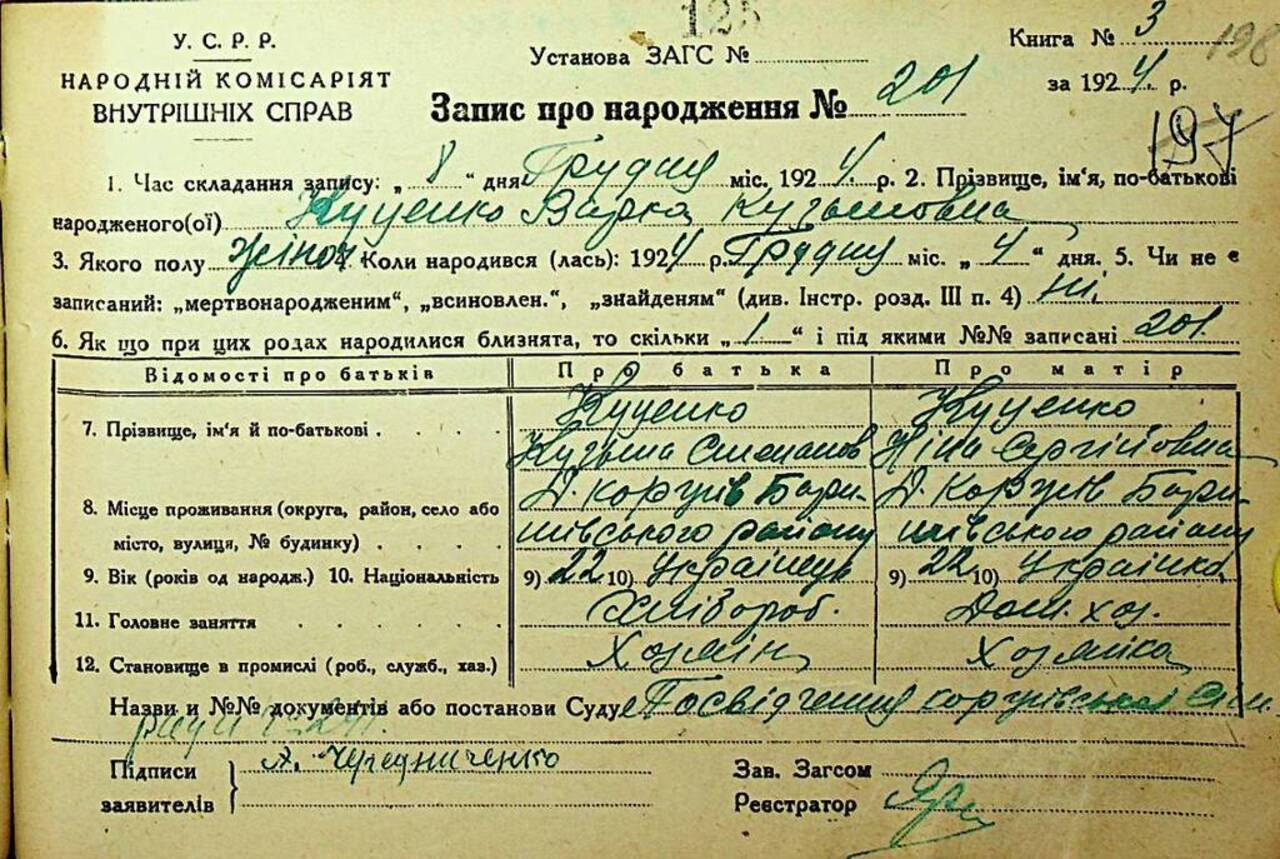 125
У. С. Р. Р.
НАРОДНІЙ КОМІСАРІЯТ
ВНУТРІШНІХ СПРАВ
Установа ЗАГС №
Книга № 3
198
за 1924 р.
Запис про народження № 201
197
1. Час складання запису: „ 8 “ дня Грудня міс. 1924 р. 2. Прізвище, ім'я, по-батькові
народженого(ої) Куценко Варка Кузьмовна
3. Якого полу жіноч. 4. Коли народився (лась): 1924 р. Грудня міс. „ 4 “ дня. 5. Чи не є
записаний: „мертвонародженим“, „всиновлен.“, „знайденям“ (див. Інстр. розд. III п. 4) ні.
6. Як що при цих родах народилися близнята, то скільки „ 1 “ і під якими №№ записані 201.
Відомості про батьків Про батька Про матір
Куценко Куценко
7. Прізвище, ім'я й по-батькові
Кузьма Степанов Ніна Сергіївна
Д. Коржів Бари- Д. Коржів Бари-
8. Місце проживання (округа, район, село або
місто, вулиця, № будинку) шівського району шівського району
9. Вік (років од народж.) 10. Національність 9) 22 10) Українець 9) 22 10) Українка
11. Головне заняття Хлібороб. Дом. хоз.
12. Становище в промислі (роб., служб., хаз.) Хозяїн Хозяйка
Назви и №№ документів або постанови Суду Посвідчення коржівської Сіл.
ради
Підписи А. Чередниченко
заявителів
Зав. Загсом
Реєстратор